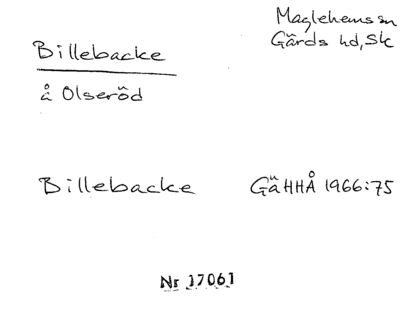 Maglehems sn
Gärds hd, Sk
Billebacke
å Olseröd
Billebacke GäHHÅ 1966:75
Nr 17061